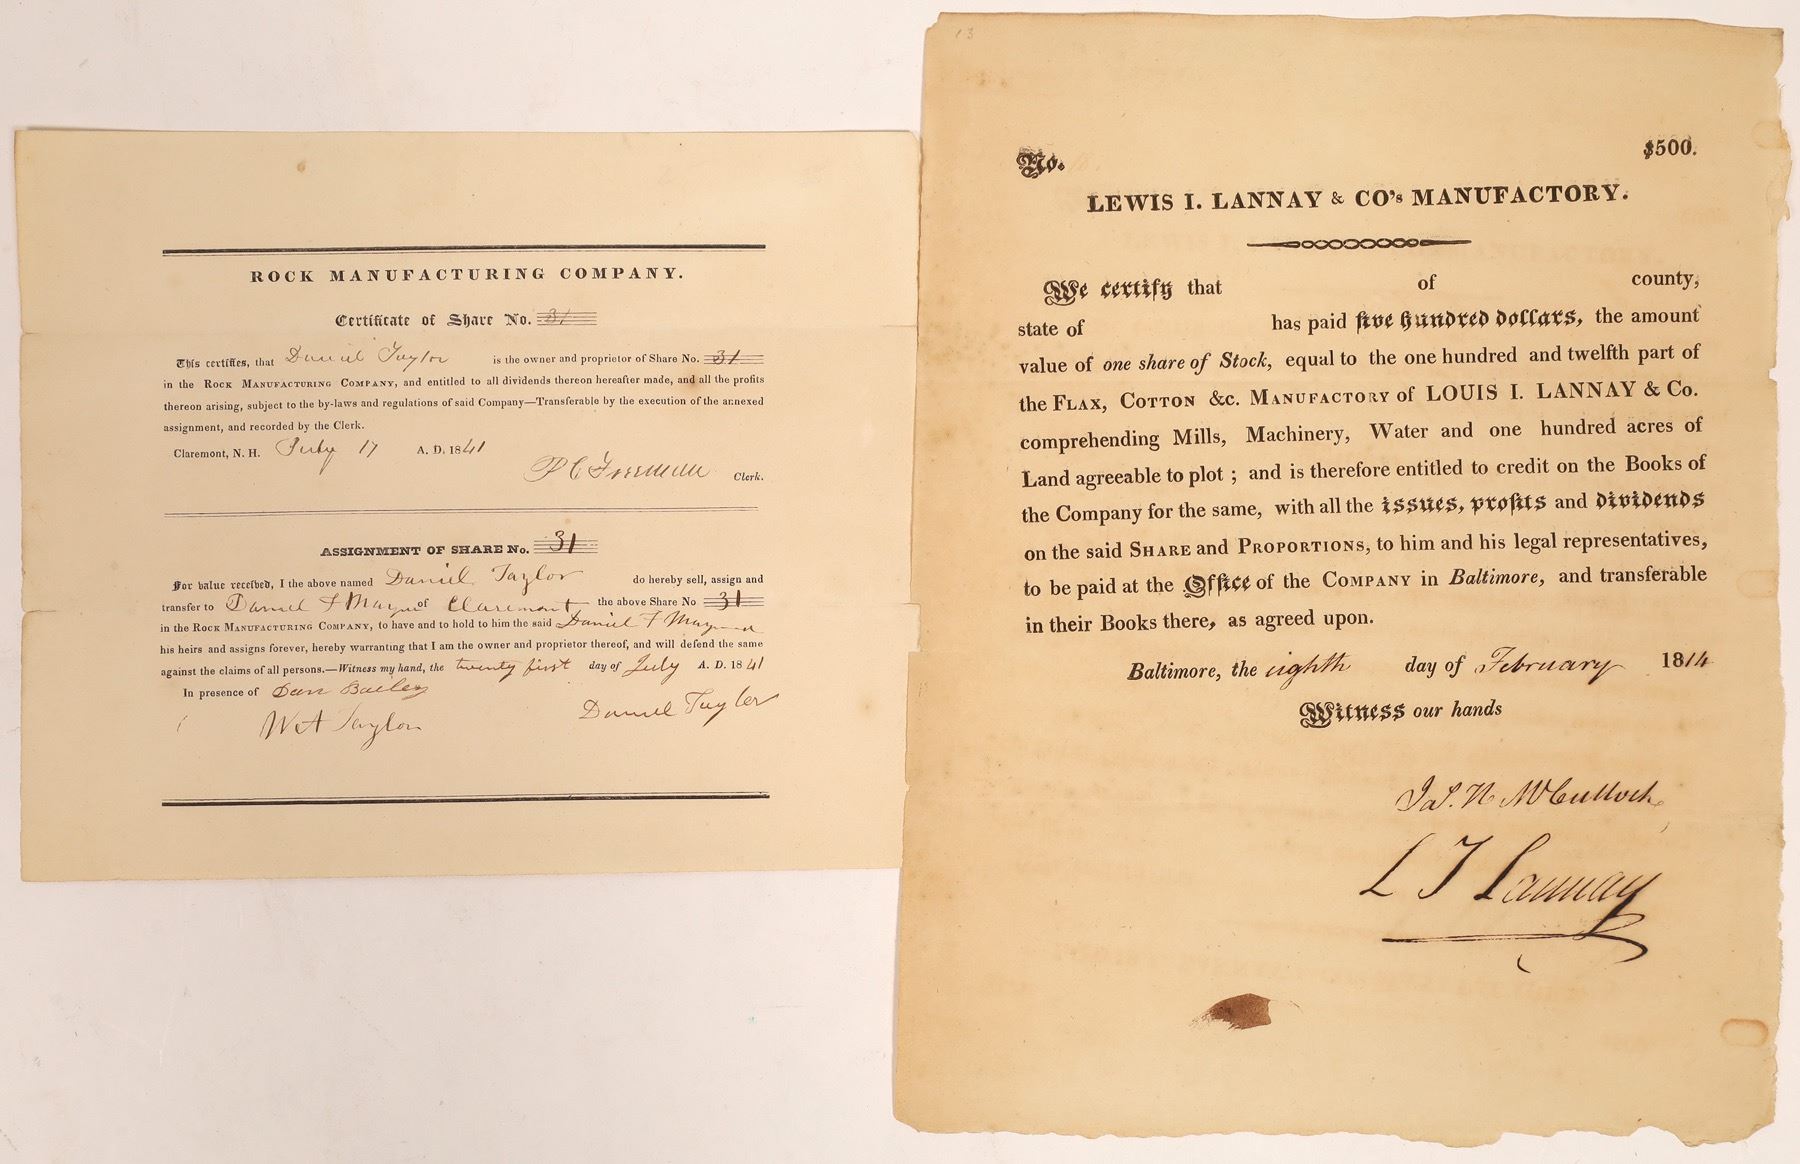 ROCK MANUFACTURING COMPANY.
Certificate of Share No. 31
This certifies, that Daniel Taylor is the owner and proprietor of Share No. 31
in the ROCK MANUFACTURING COMPANY, and entitled to all dividends thereon hereafter made, and all the profits
thereon arising, subject to the by-laws and regulations of said Company—Transferable by the execution of the annexed
assignment, and recorded by the Clerk.
Claremont, N. H. July 17 A. D. 1841
P C Freeman Clerk.
ASSIGNMENT OF SHARE No. 31
For value received, I the above named Daniel Taylor do hereby sell, assign and
transfer to Daniel F Maynard of Claremont the above Share No 31
in the ROCK MANUFACTURING COMPANY, to have and to hold to him the said Daniel F Maynard
his heirs and assigns forever, hereby warranting that I am the owner and proprietor thereof, and will defend the same
against the claims of all persons.—Witness my hand, the twenty first day of July A. D. 1841
In presence of Dan Bailey
W A Taylor
Daniel Taylor
13
No.
$500.
LEWIS I. LANNAY & CO's MANUFACTORY.
We certify that of county,
state of has paid five hundred dollars, the amount
value of one share of Stock, equal to the one hundred and twelfth part of
the FLAX, COTTON &c. MANUFACTORY of LOUIS I. LANNAY & Co.
comprehending Mills, Machinery, Water and one hundred acres of
Land agreeable to plot ; and is therefore entitled to credit on the Books of
the Company for the same, with all the issues, profits and dividends
on the said SHARE and PROPORTIONS, to him and his legal representatives,
to be paid at the Office of the COMPANY in Baltimore, and transferable
in their Books there, as agreed upon.
Baltimore, the eighth day of February 1814
Witness our hands
Jas. H McCulloch
L I Lannay